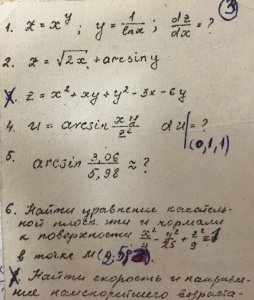 3
1. z = x^y ; y = 1/lnx ; dz/dx = ?
2. z = √2x + arcsin y
3. z = x² + xy + y² - 3x - 6y
4. u = arcsin xy/z² du|(0,1,1) = ?
5. arcsin 3,06/5,98 ≈ ?
6. Найти уравнение касатель-
ной плоск. ти и нормали
к поверхности x²/4 + y²/25 + z²/9 = 1
в точке M(
7. Найти скорость и направле-
ние наискорейшего возраста-